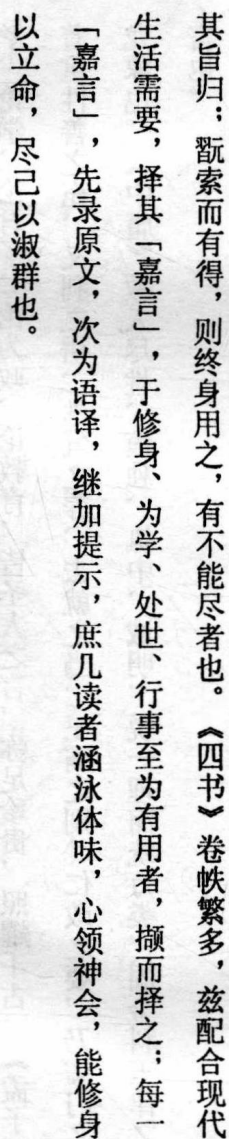 其旨归；翫索而有得，则终身用之，有不能尽者也。《四书》卷帙繁多，兹配合现代
生活需要，择其「嘉言」，于修身、为学、处世、行事至为有用者，撷而择之；每一
「嘉言」，先录原文，次为语译，继加提示，庶几读者涵泳体味，心领神会，能修身
以立命，尽己以淑群也。